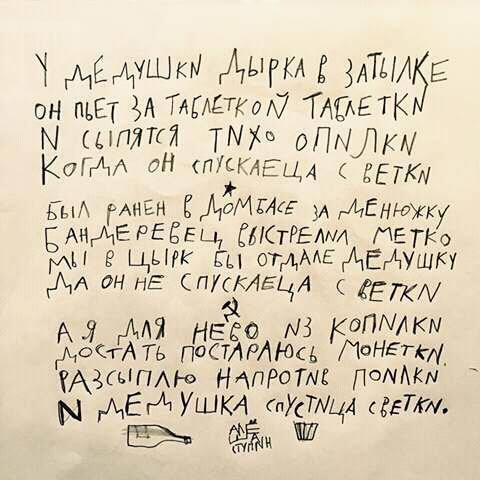 У ДЕДУШКИ ДЫРКА В ЗАТЫЛКЕ
ОН ПЬЕТ ЗА ТАБЛЕТКОЙ ТАБЛЕТКИ
И СЫПЯТСЯ ТИХО ОПИЛКИ
КОГДА ОН СПУСКАЕЦА С ВЕТКИ
БЫЛ РАНЕН В ДОМБАСЕ ЗА ДЕНЮЖКУ
БАНДЕРЕВЕЦ ВЫСТРЕЛИЛ МЕТКО
МЫ В ЩЫРК БЫ ОТДАЛЕ ДЕДУШКУ
ДА ОН НЕ СПУСКАЕЦА С ВЕТКИ
А Я ДЛЯ НЕВО ИЗ КОПИЛКИ
ДОСТАТЬ ПОСТАРАЮСЬ МОНЕТКИ.
РАЗСЫПЛЮ НАПРОТИВ ПОИЛКИ
И ДЕДУШКА СПУСТИЦА С ВЕТКИ.
АЛЁ
ДА
СТУПИН